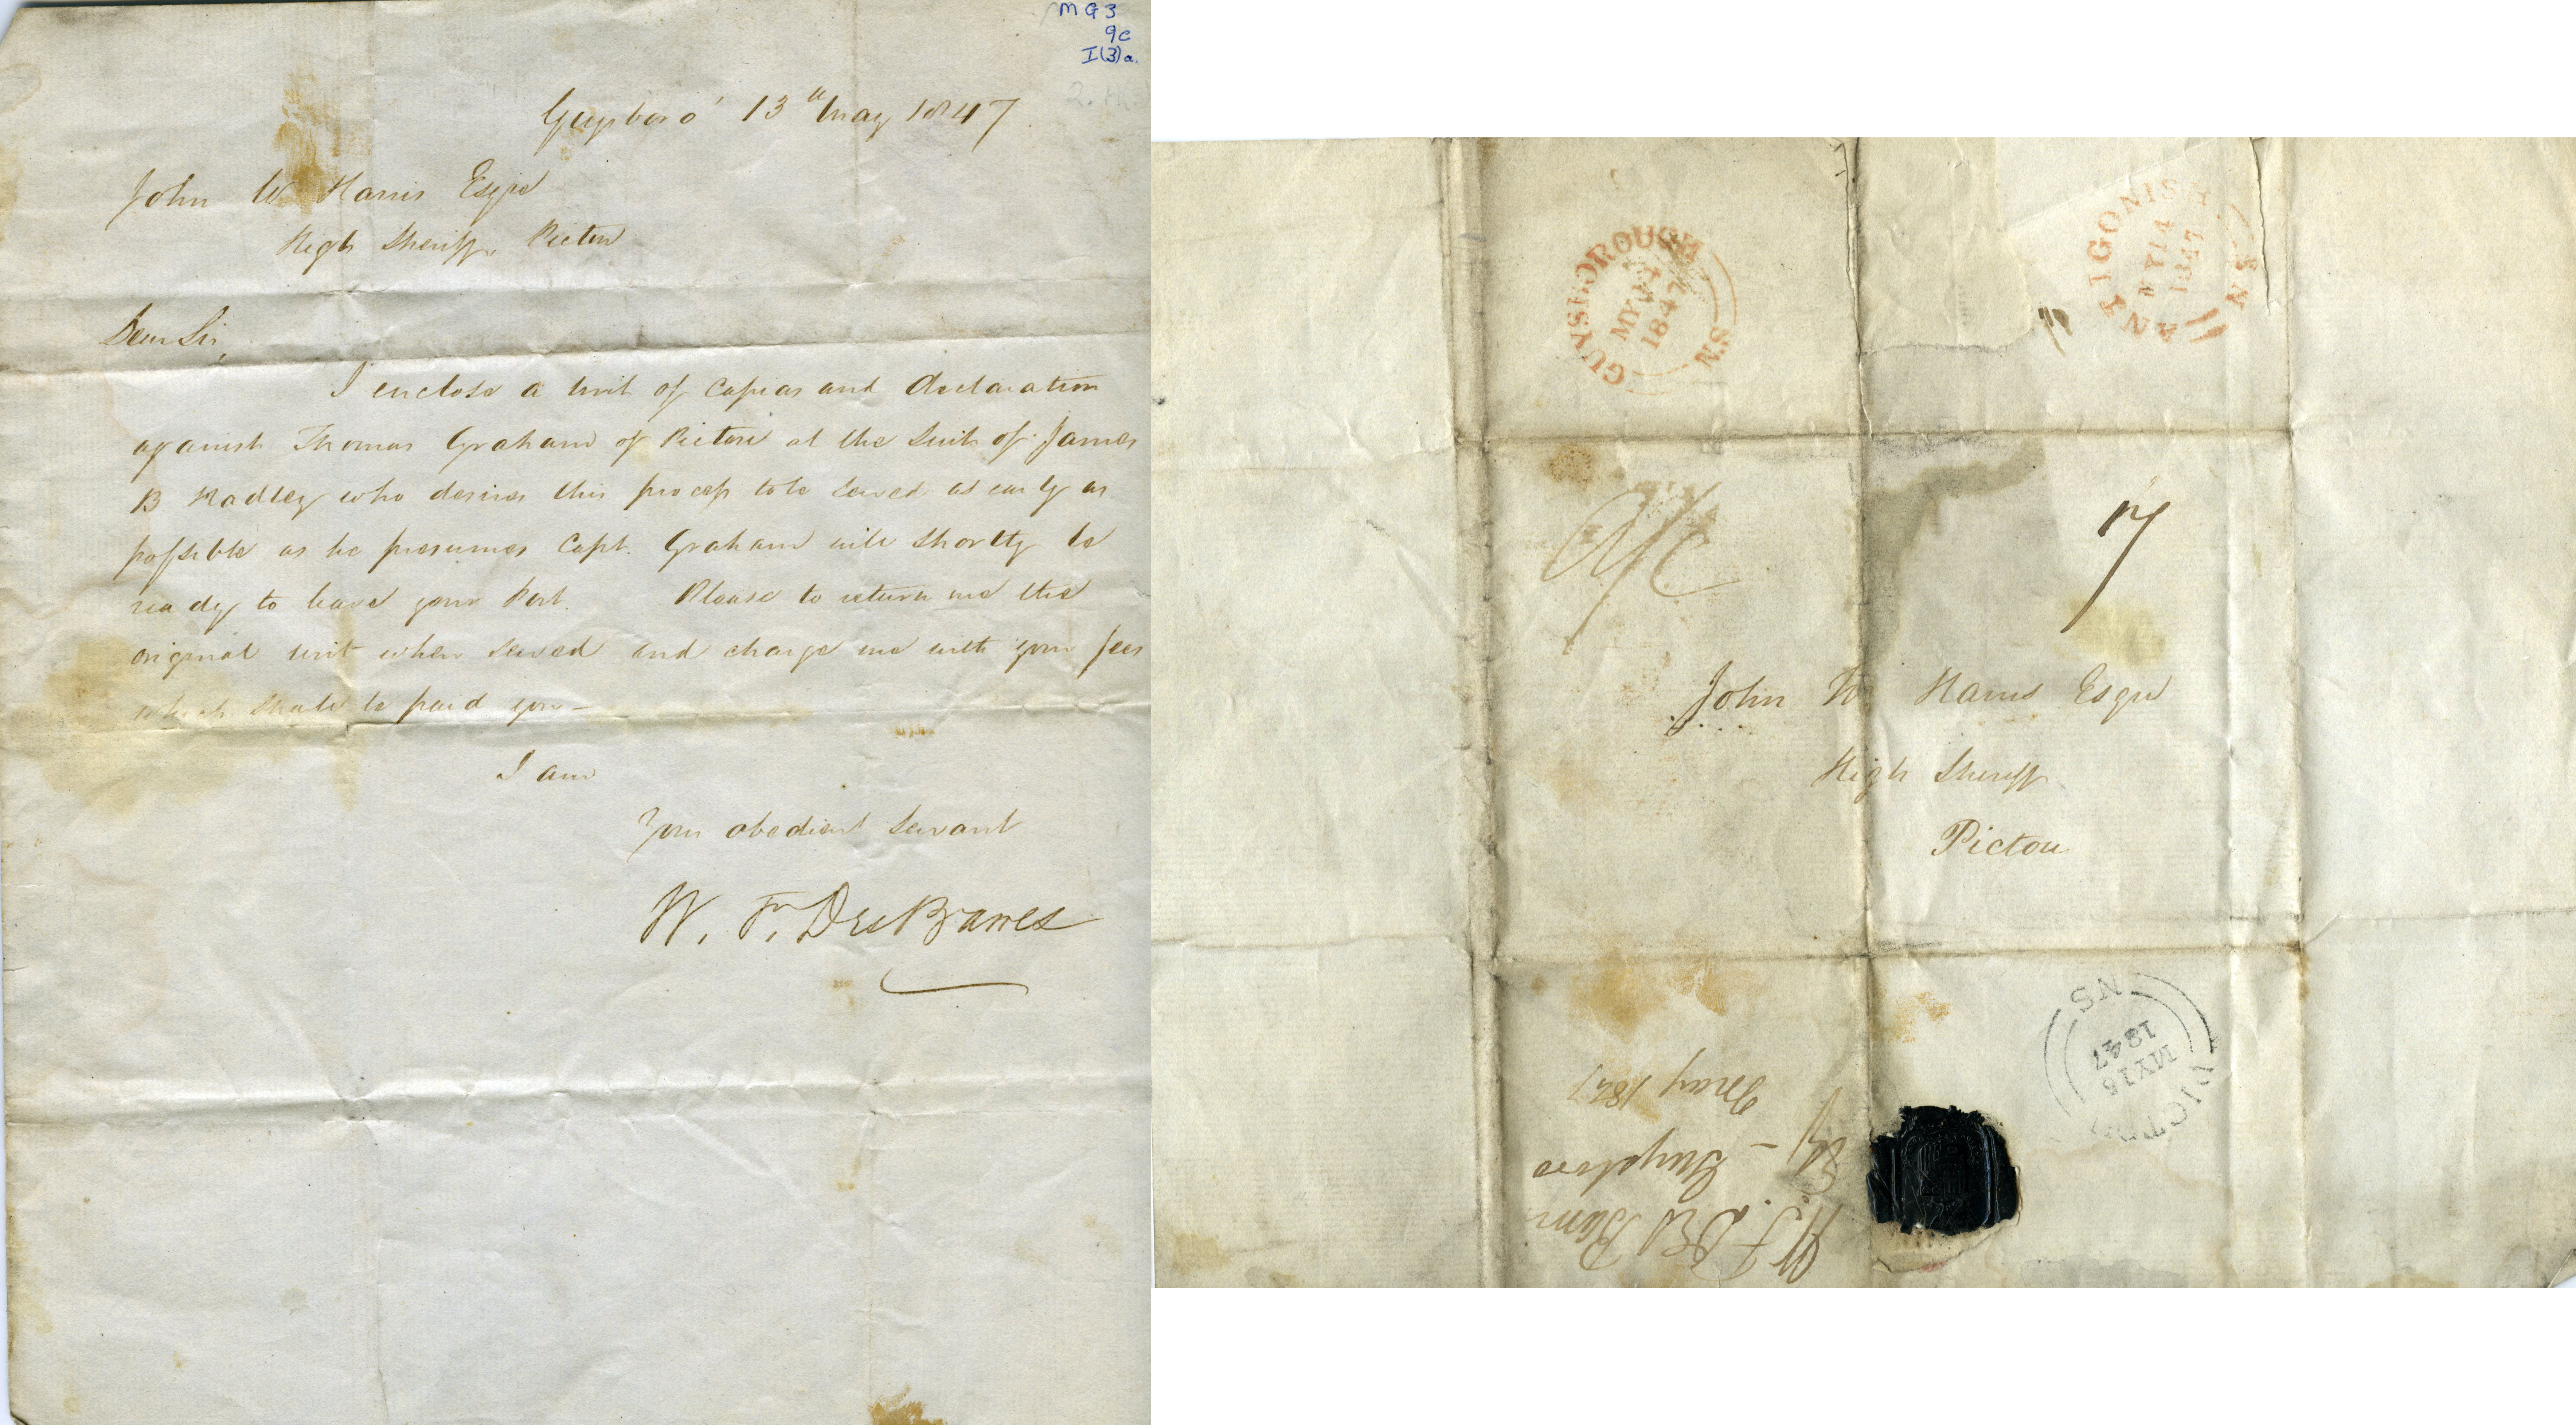 MG3
9c
I(3)a.
Guysboro' 13th May 1847
John W Harris Esqre
High Sheriff, Pictou
Dear Sir,
I enclose a writ of Capias and declaration
against Thomas Graham of Pictou at the Suit of James
B Hadley who desires this process to be served as early as
possible as he presumes Capt. Graham will shortly be
ready to leave your Port. Please to return me the
original writ when served and charge me with your fees
which shall be paid you -
I am
Your obedient Servant
W. F. DesBarres
GUYSBOROUGH
MY 14
1847
N.S
ANTIGONISH
MY 14
1847
N.S
7
John W Harris Esqre
High Sheriff
Pictou
PICTOU
MY 15
1847
NS
W. F. Des Barres
Esq - Guysboro
May 1847